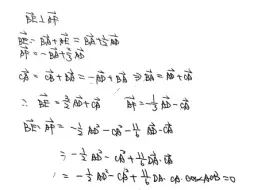 BE⊥AF
BE = BA + AE = BA + ⅓AD
AF = -BA + ⅔AD
CA = CD + DA = -AD + BA ⇒ BA = AD + CA
∴ BE = 3/2 AD + CA AF = -⅓AD - CA
BE·AF = -½AD² - CA² - 11/6 AD·CA
= -½AD² - CA² + 11/6 DA·CA
= -½AD² - CA² + 11/6 DA·CA·cos = 0